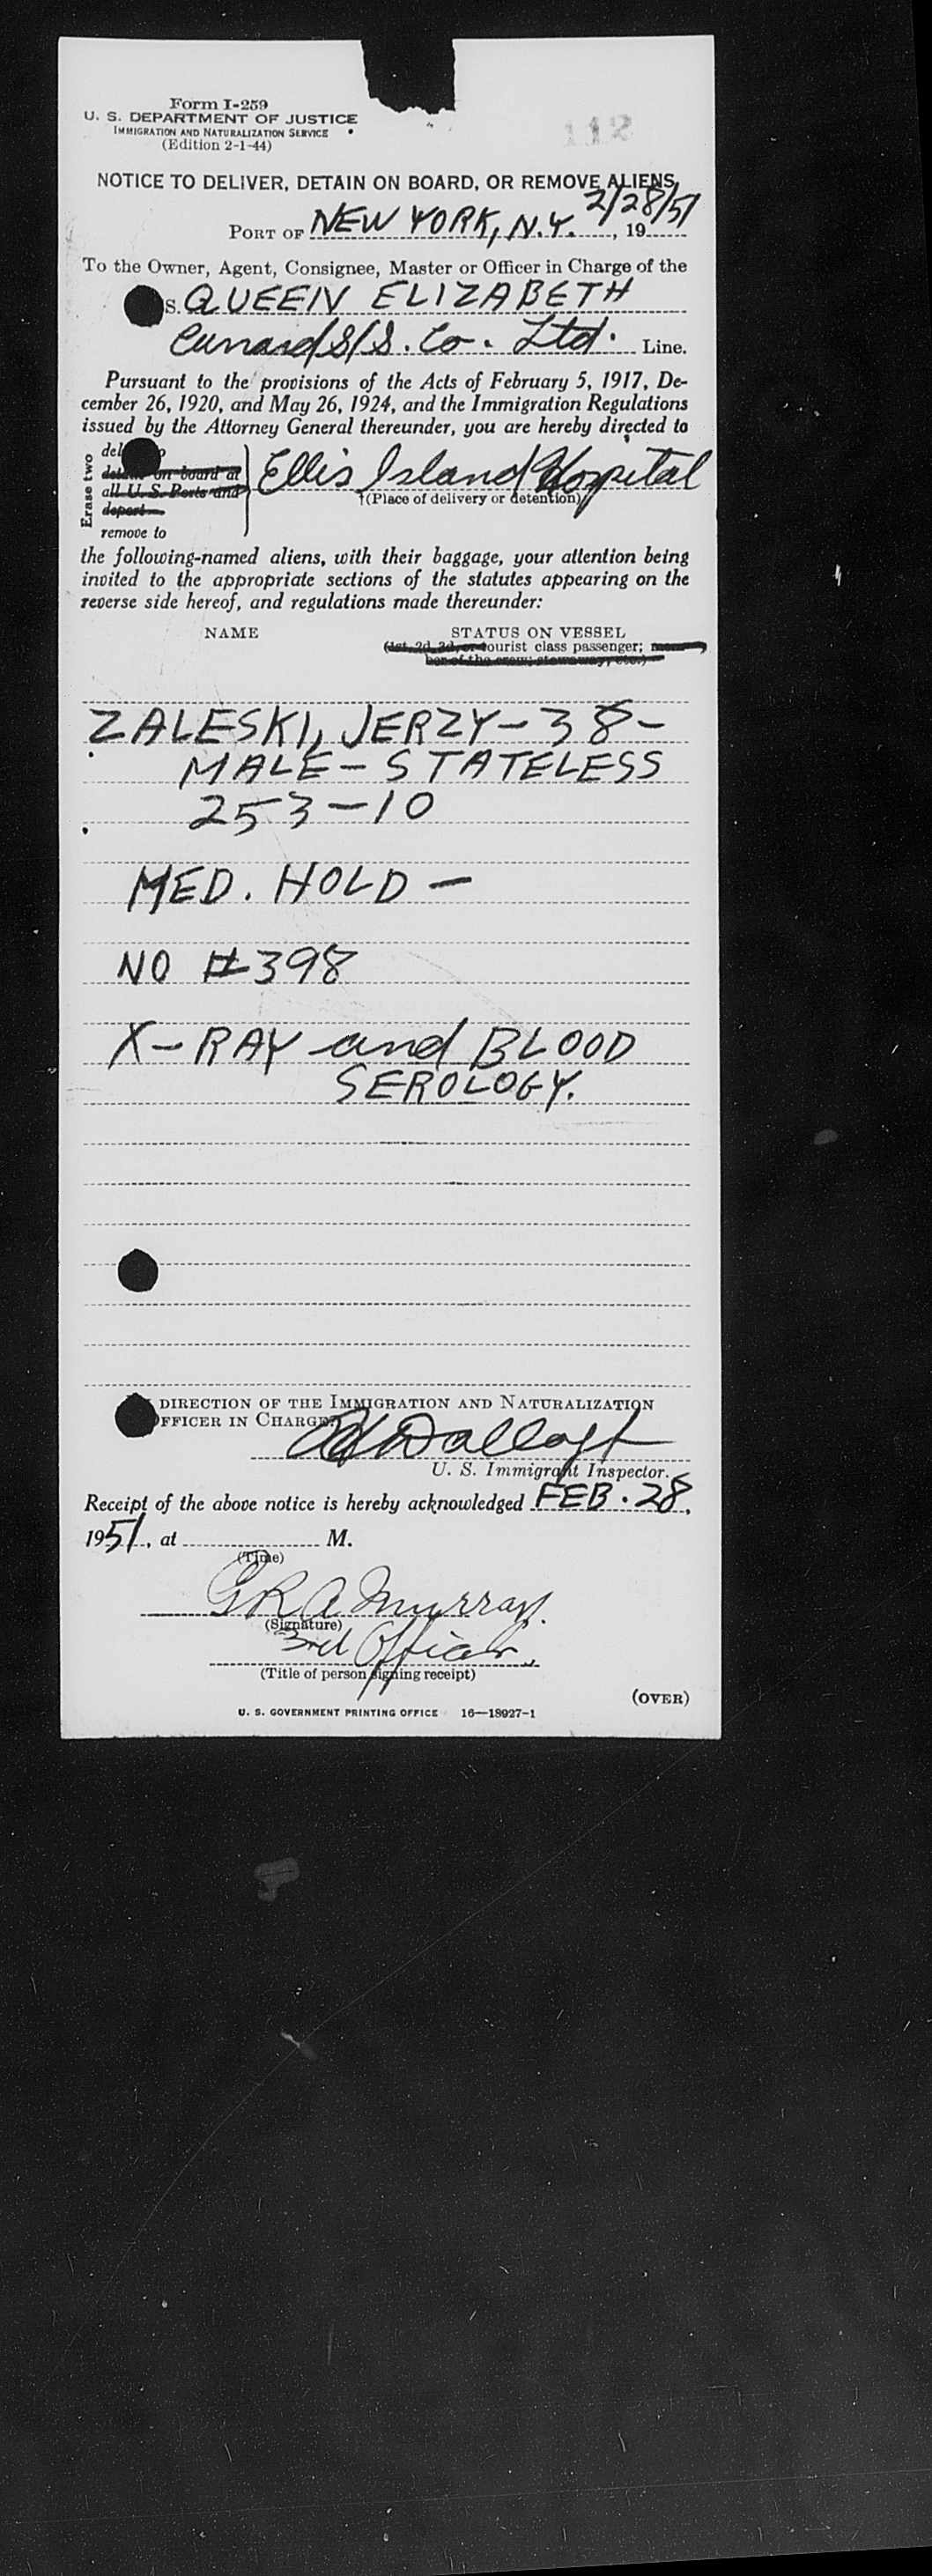 Form I-259
U. S. DEPARTMENT OF JUSTICE
IMMIGRATION AND NATURALIZATION SERVICE
(Edition 2-1-44)
112
NOTICE TO DELIVER, DETAIN ON BOARD, OR REMOVE ALIENS
PORT OF NEW YORK, N.Y. 2/28/51, 19
To the Owner, Agent, Consignee, Master or Officer in Charge of the
S. QUEEN ELIZABETH
Cunard S/S. Co. Ltd. Line.
Pursuant to the provisions of the Acts of February 5, 1917, De-
cember 26, 1920, and May 26, 1924, and the Immigration Regulations
issued by the Attorney General thereunder, you are hereby directed to
Erase two
detain on board at
all U. S. Ports and
deport
remove to
Ellis Island Hospital
(Place of delivery or detention)
the following-named aliens, with their baggage, your attention being
invited to the appropriate sections of the statutes appearing on the
reverse side hereof, and regulations made thereunder:
NAME STATUS ON VESSEL
(1st, 2d, 3d, or tourist class passenger; mem-
ber of the crew; stowaway, etc.)
ZALESKI, JERZY-38-
MALE-STATELESS
253-10
MED. HOLD-
NO #398
X-RAY and BLOOD
SEROLOGY.
DIRECTION OF THE IMMIGRATION AND NATURALIZATION
OFFICER IN CHARGE:
U. S. Immigrant Inspector.
Receipt of the above notice is hereby acknowledged FEB. 28,
1951, at M.
(Time)
G R A Murray.
(Signature)
3rd Officer.
(Title of person signing receipt)
(OVER)
U. S. GOVERNMENT PRINTING OFFICE 16—18927-1